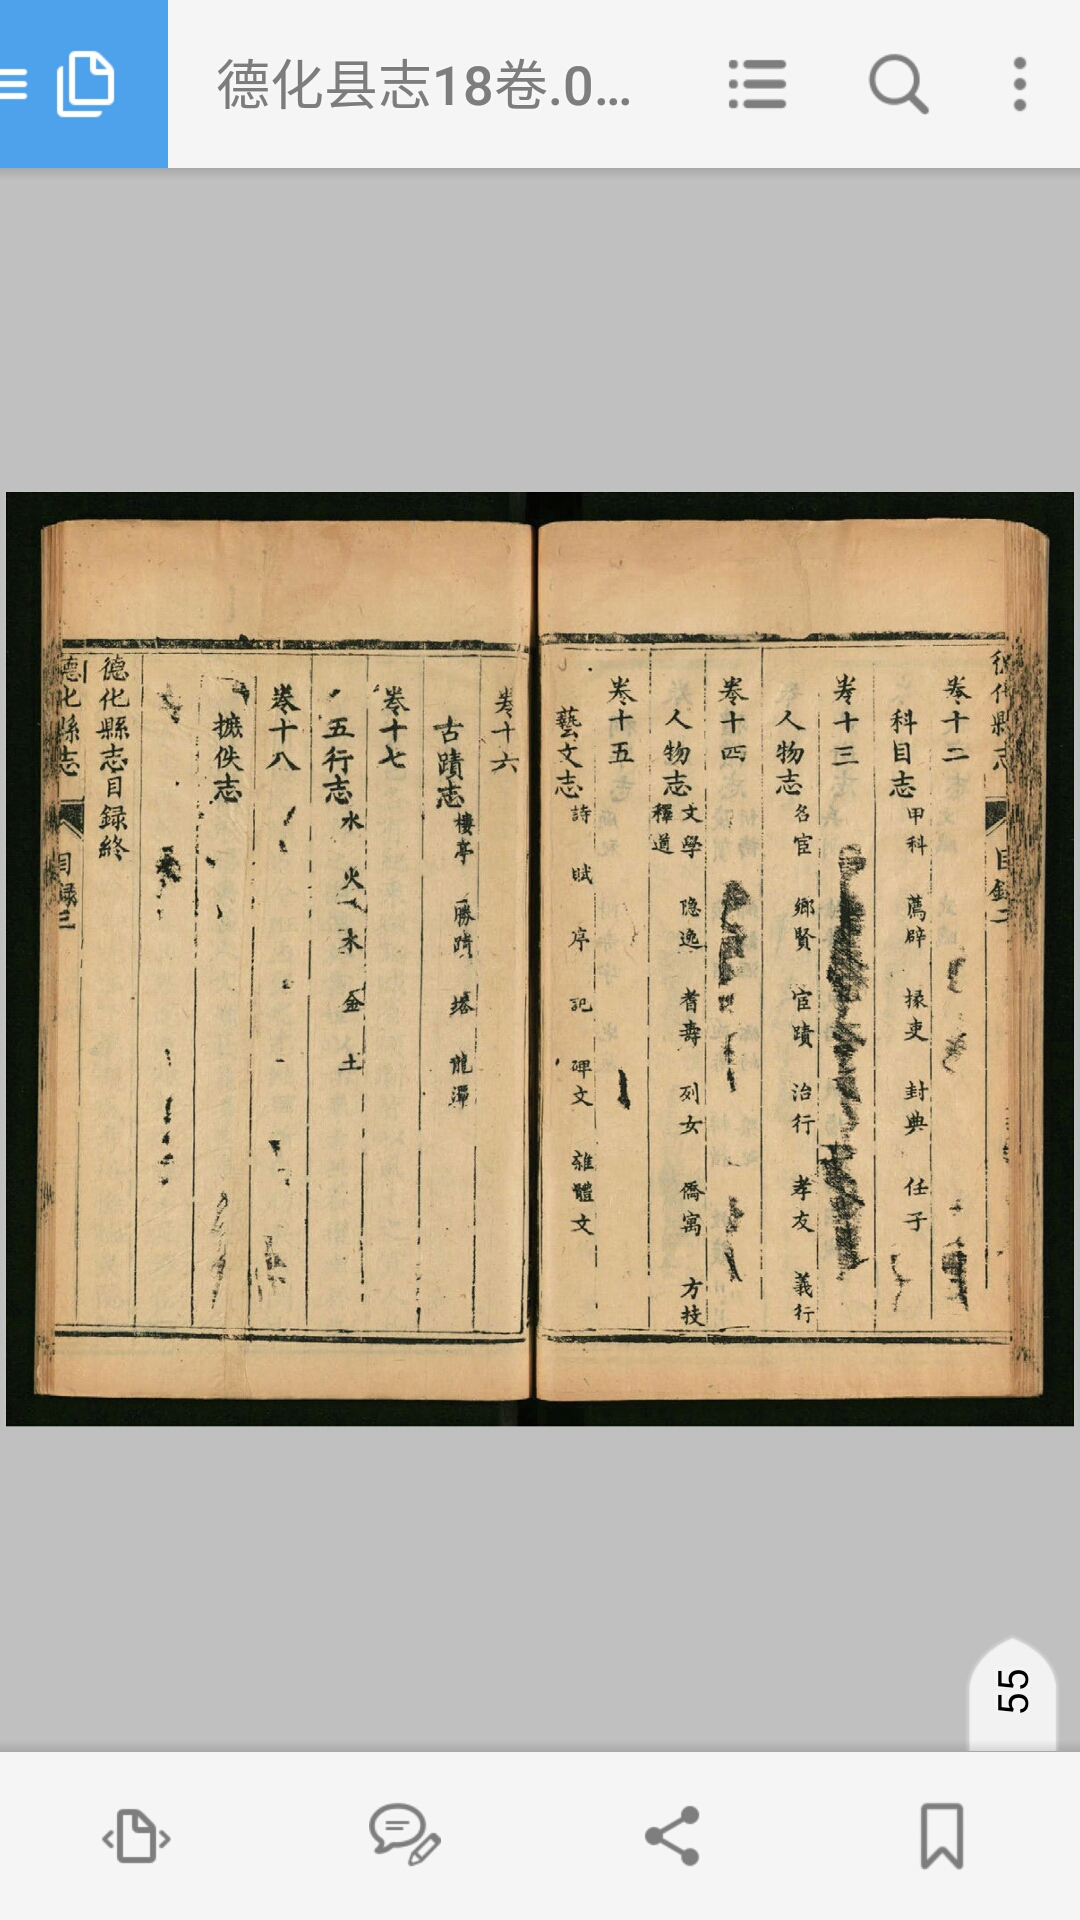 德化县志18卷.0...
卷十二
科目志
甲科 薦辟 掾吏 封典 任子
卷十三
人物志
名宦 鄉賢 宦蹟 治行 孝友 義行
卷十四
人物志
文學 隐逸 耆壽 列女 僑寓 方技
釋道
卷十五
藝文志
詩 賦 序 記 碑文 雜體文
卷十六
古蹟志
樓亭 勝蹟 塔 龍潭
卷十七
五行志
水 火 木 金 土
卷十八
摭佚志
德化縣志目録終
德化縣志 目録三
55